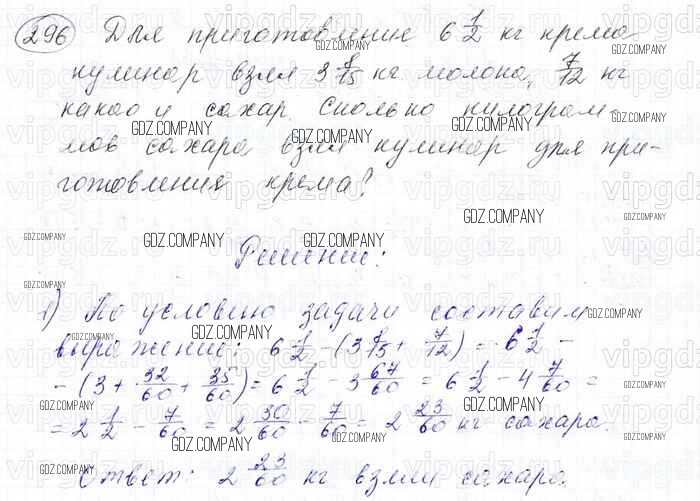 296 Для приготовления 6 1/2 кг крема
кулинар взял 3 8/15 кг молока, 7/12 кг
какао и сахар. Сколько килограм-
мов сахара взял кулинар для при-
готовления крема?
Решение:
1) По условию задачи составим
выражение: 6 1/2 - (3 8/15 + 7/12) = 6 1/2 -
- (3 + 32/60 + 35/60) = 6 1/2 - 3 67/60 = 6 1/2 - 4 7/60 =
= 2 1/2 - 7/60 = 2 30/60 - 7/60 = 2 23/60 кг сахара.
Ответ: 2 23/60 кг взяли сахара.
GDZ.COMPANY
vipgdz.ru